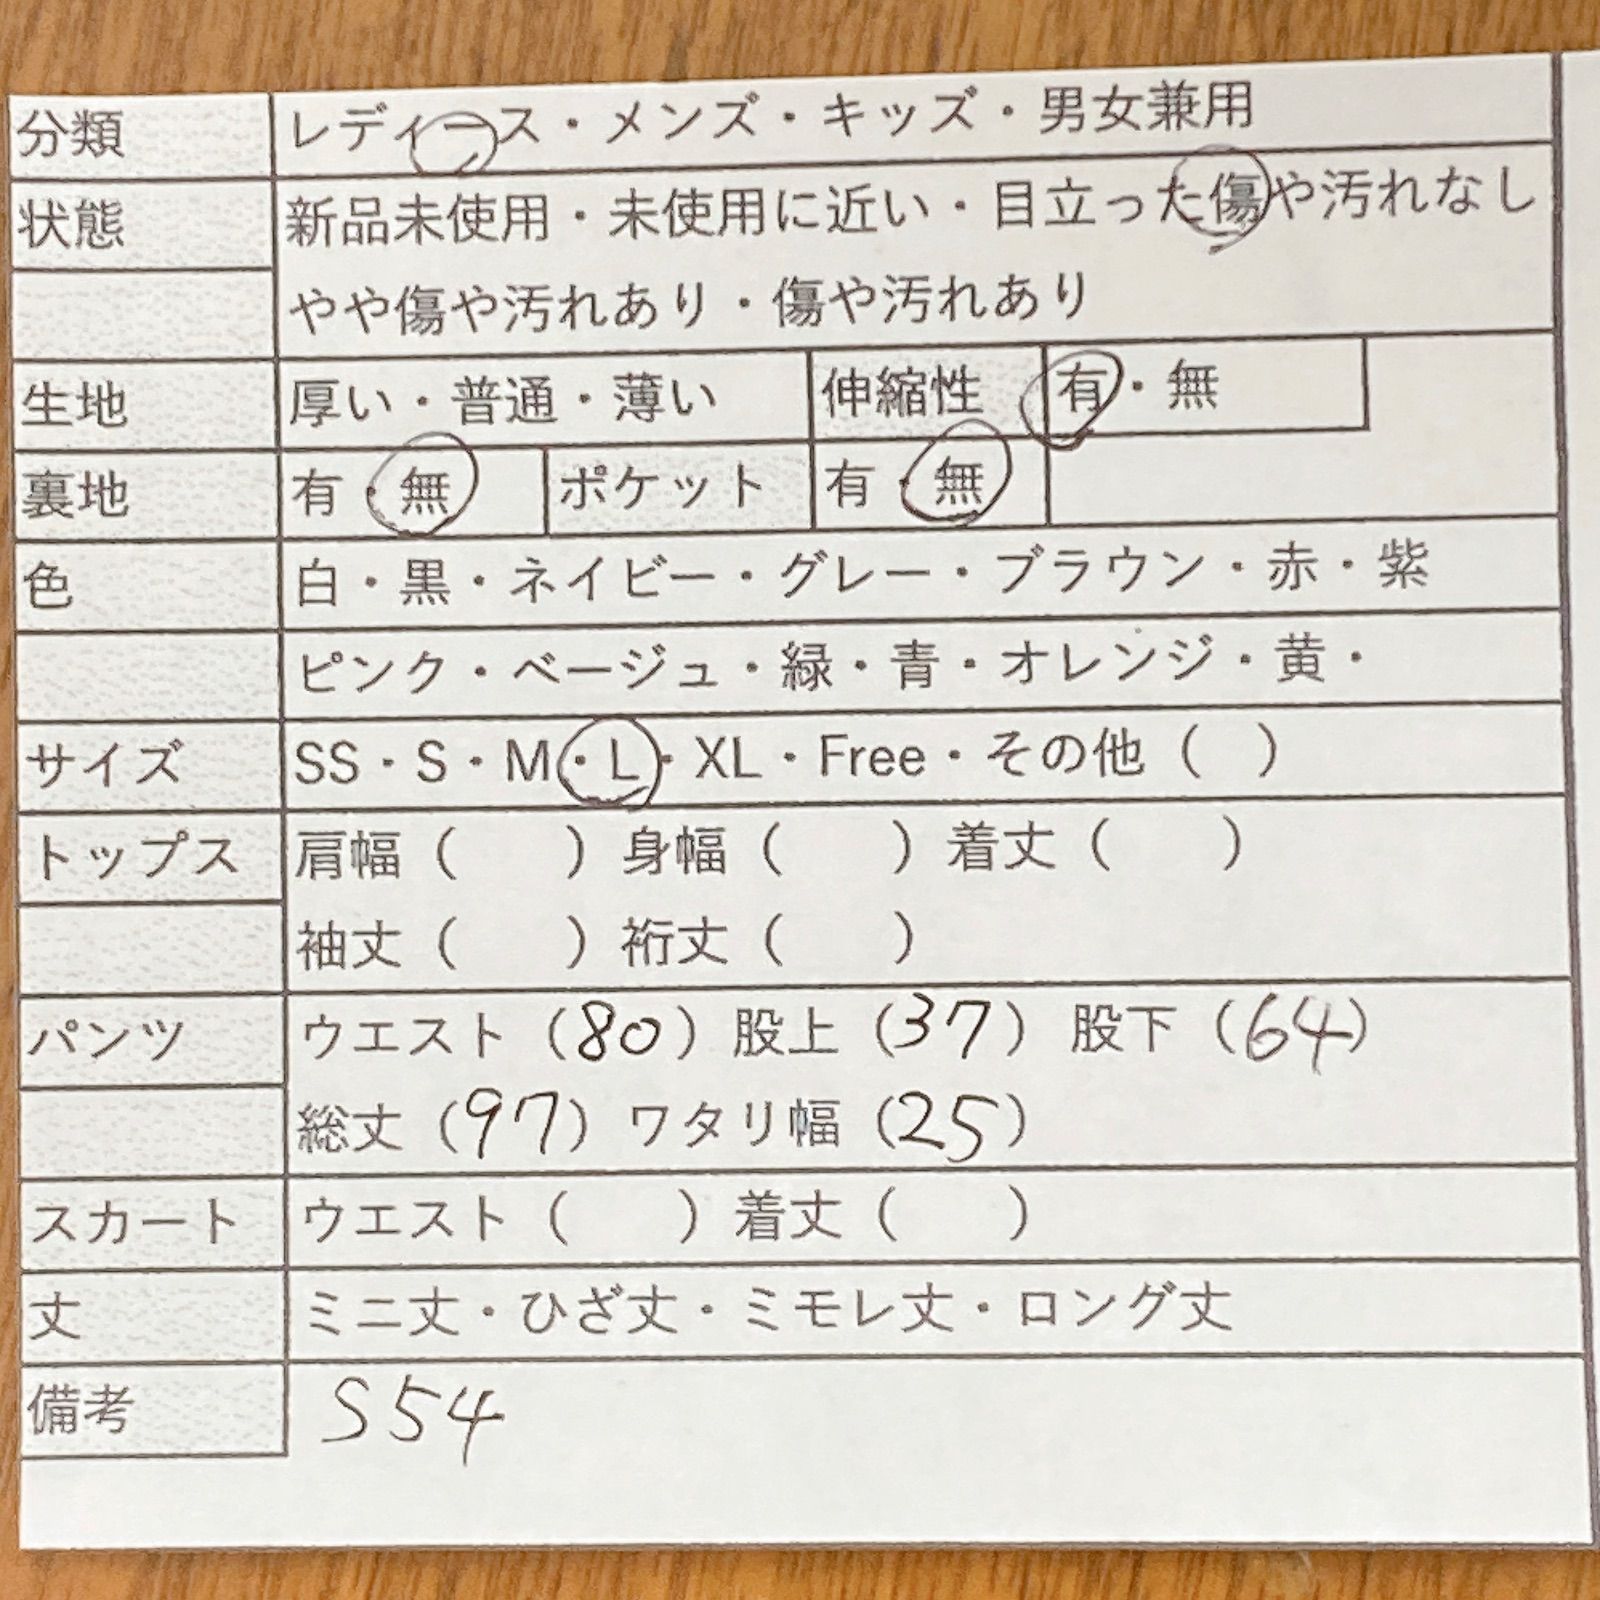 分類 レディース・メンズ・キッズ・男女兼用
状態 新品未使用・未使用に近い・目立った傷や汚れなし
やや傷や汚れあり・傷や汚れあり
生地 厚い・普通・薄い 伸縮性 有・無
裏地 有・無 ポケット 有・無
色 白・黒・ネイビー・グレー・ブラウン・赤・紫
ピンク・ベージュ・緑・青・オレンジ・黄・
サイズ SS・S・M・L・XL・Free・その他（ ）
トップス 肩幅（ ）身幅（ ）着丈（ ）
袖丈（ ）裄丈（ ）
パンツ ウエスト（80）股上（37）股下（64）
総丈（97）ワタリ幅（25）
スカート ウエスト（ ）着丈（ ）
丈 ミニ丈・ひざ丈・ミモレ丈・ロング丈
備考 S54